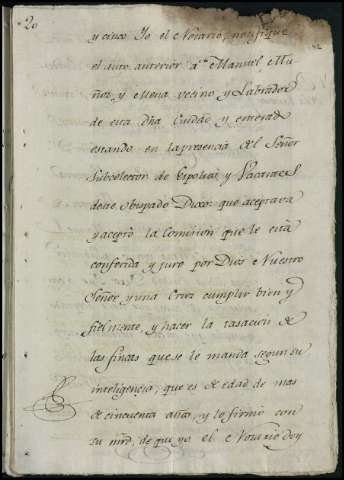 20
y cinco Yo el Notario, notifiqué
el auto anterior a Dn Manuel Mu
ñoz y Mena vecino y Labrador
de esta Dha Ciudad y enterado
estando en la presencia del Señor
Subcolector de Espolios y Vacantes
deste Obispado Dixo: que aceptava
y aceptò la Comision que le está
conferida y juró por Dios Nuestro
Señor y una Cruz cumplir bien y
fielmente, y hacer la tasacion de
las fincas que se le manda segun su
inteligencia; que es de edad de mas
de cincuenta años, y lo firmó con
su mrd. de que yo el Notario doy